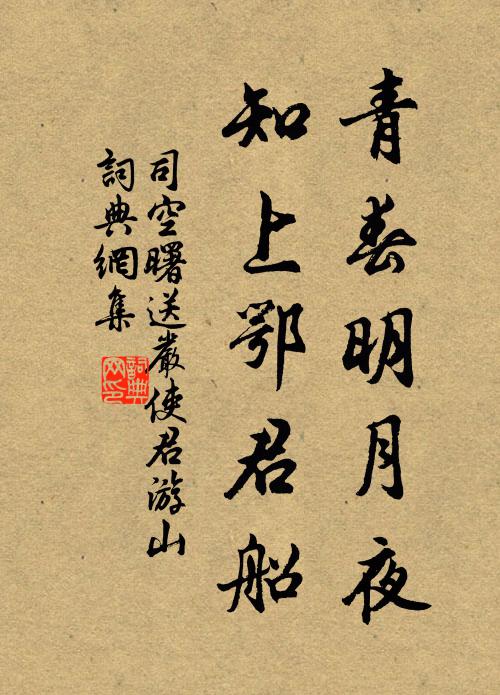 青春明月夜
知上鄂君船
司空曙送嚴使君游山
詞典網集
詞典
网印